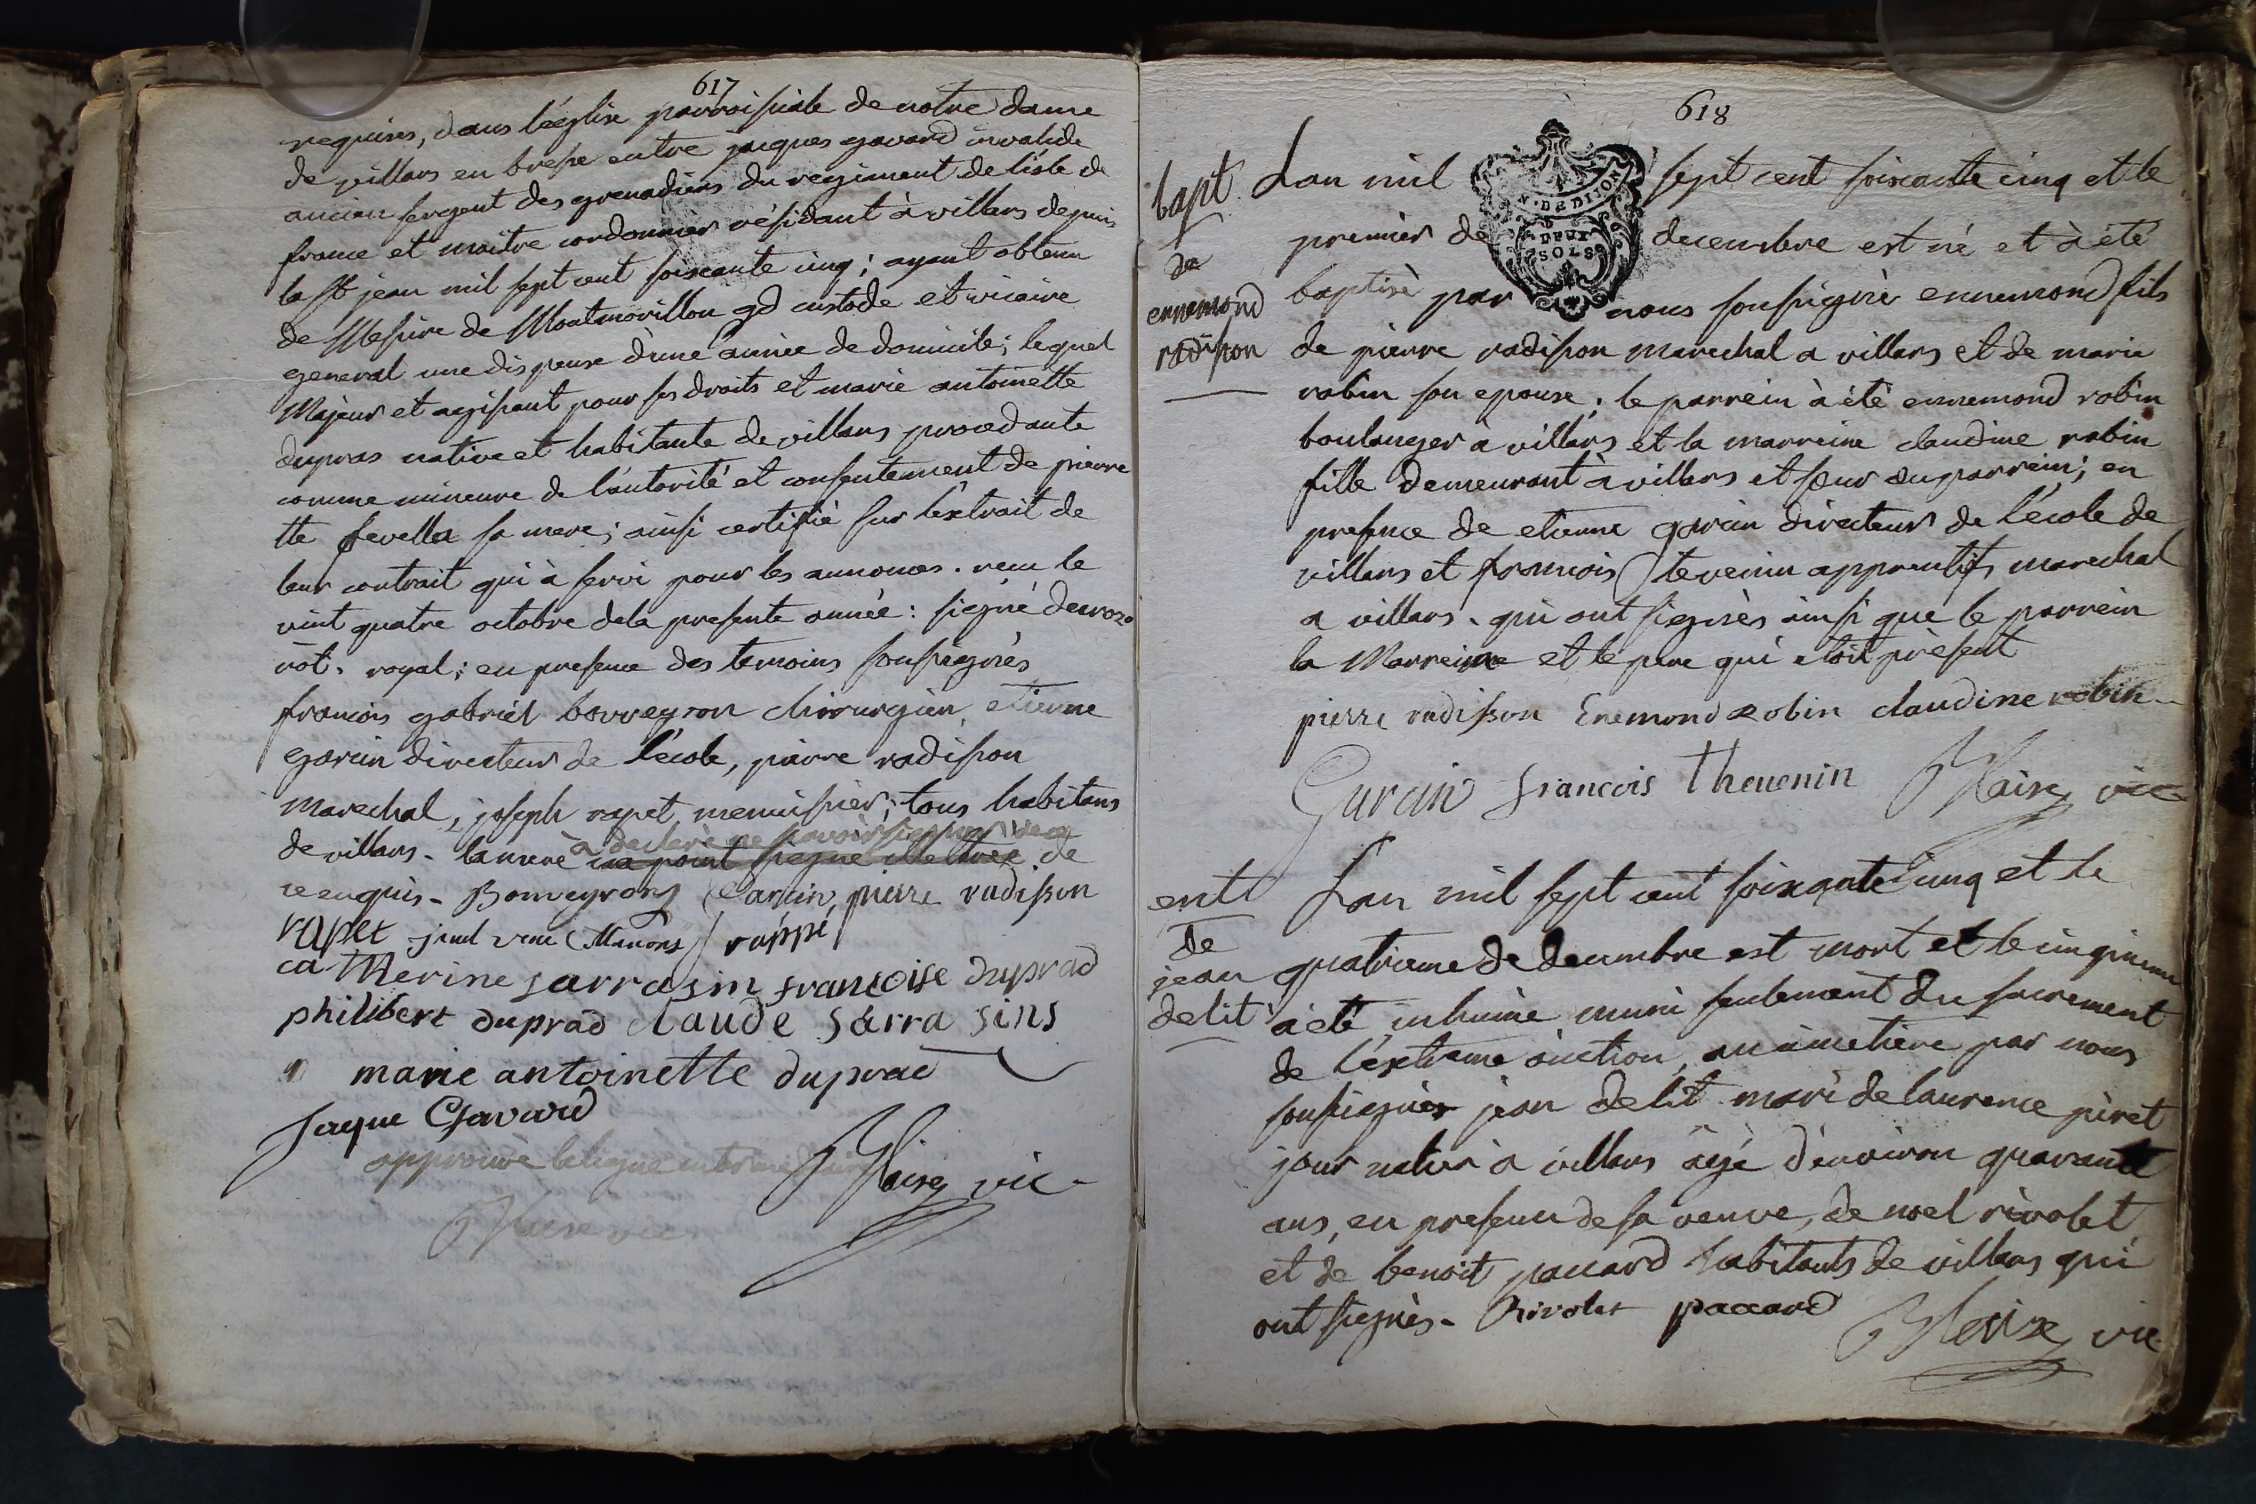 617
requises, dans l'église parroissiale de notre dame
de villars en bresse entre jacques gavard invalide
ancien sergent des grenadiers du regiment de l'isle de
france et maitre cordonnier résidant à villars depuis
la St jean mil sept cent soixante cinq; ayant obtenu
de Messire de Montmorillon gd custode et vicaire
general une dispense d'une année de domicile; lequel
Majeur et agissant pour ses droits et marie antoinette
dupras native et habitante de villars procedante
comme mineure de l'autorité et consentement de pierre
tte fevella sa mere; ainsi certifié sur l'extrait de
leur contrait qui à servi pour les annonces. recu le
vint quatre octobre dela presente année: signé
not. royal; en presence des temoins soussignés
francois gabriel borreyron chirurgien, etienne
garcin directeur de l'école, pierre radisson
marechal, joseph rapet menuisier; tous habitans
à declaré ne savoir signer
de villars. la mere n'a point signé illetrée de
ce enquis. Borreyron Garcin, pierre radisson
rapet rappé
catherine sarrasin francoise duprad
philibert duprad claude sarra sins
marie antoinette duprad
Jaque Gavard
approuvé la ligne intermediaire
Blaise vic.
Blaise vic
618
bapt
de
ennemond
radisson
Lan mil sept cent soixante cinq et le
N. DE DIJON
DEUX
SOLS
premier de decembre est né et à été
baptisé par nous soussigné ennemond fils
de pierre radisson marechal a villars et de marie
robin son epouse; le parrein à été ennemond robin
boulanger à villars et la marreine claudine robin
fille demeurant à villars et sœur du parrein; en
presence de etienne garcin directeur de l'école de
villars et francois tevenin apprentifs marechal
a villars. qui ont signés ainsi que le parrein
la Marreine et le pere qui etoit présent
pierre radisson Enemond Robin claudine robin
Garcin francois Thevenin Blaise vic
ent
de
jean
delit
Lan mil sept cent soixante cinq et le
quatrieme de decembre est mort et le cinquieme
à été inhumé muni seulement du sacrement
de l'extreme onction, au cimetiere par nous
soussigné jean delit mari de laurence piret
journalier à villars âgé d'environ quarante
ans, en presence de sa veuve, de noel rivolet
et de benoit paccard habitants de villars qui
ont signés. Rivolet paccard
Blaise vic